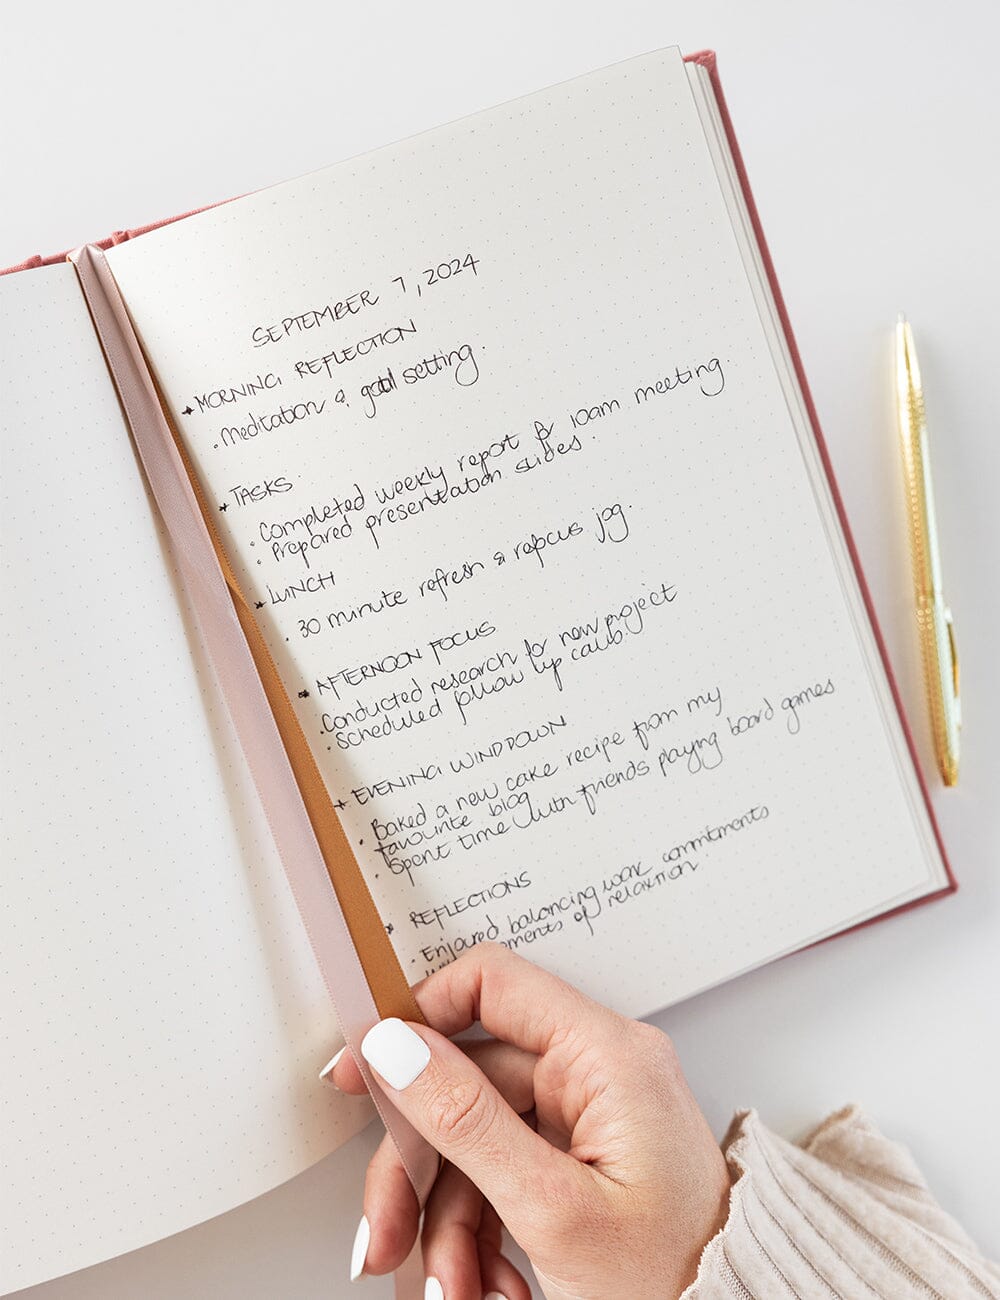 SEPTEMBER 7, 2024
MORNING REFLECTION
. Meditation & goal setting.
TASKS
. Completed weekly report for 10am meeting.
. Prepared presentation slides.
LUNCH
. 30 minute refresh & refocus jog.
AFTERNOON FOCUS
. Conducted research for new project
. Scheduled follow up calls.
EVENING WIND DOWN
. Baked a new cake recipe from my
favourite blog
. Spent time with friends playing board games
REFLECTIONS
. Enjoyed balancing work commitments
of relaxation